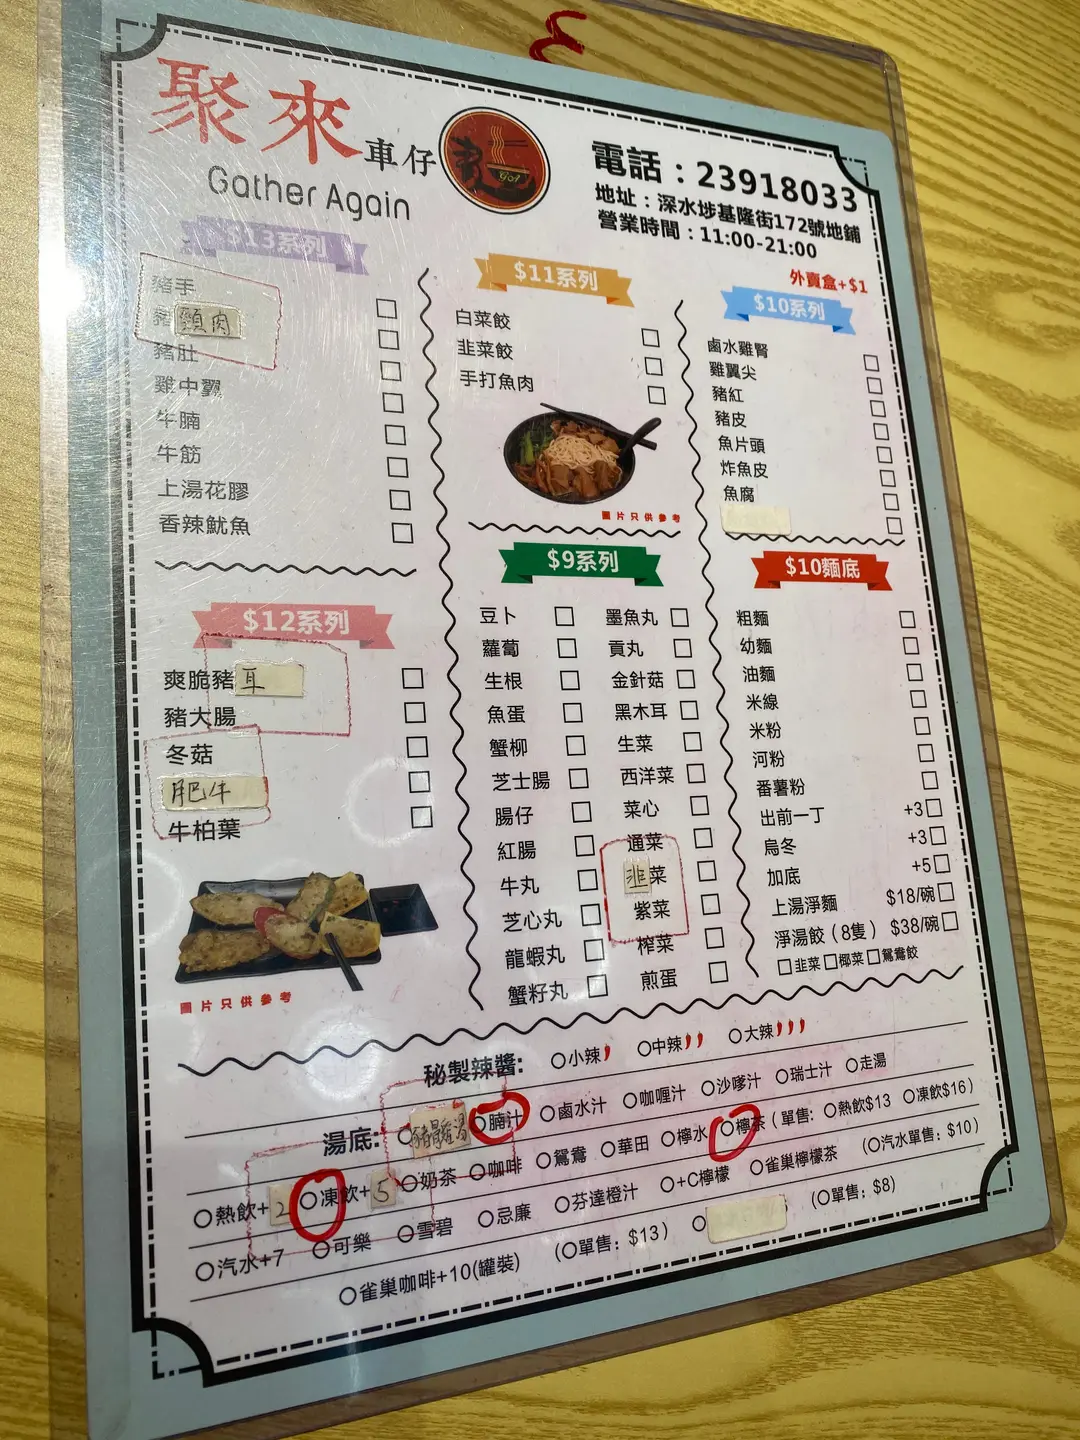 聚來車仔
Gather Again
電話：23918033
地址：深水埗基隆街172號地鋪
營業時間：11:00-21:00
外賣盒+$1
$13系列
豬手
豬頸肉
豬肚
雞中翼
牛腩
牛筋
上湯花膠
香辣魷魚
$12系列
爽脆豬耳
豬大腸
冬菇
肥牛
牛柏葉
圖片只供參考
$11系列
白菜餃
韭菜餃
手打魚肉
圖片只供參考
$9系列
豆卜
蘿蔔
生根
魚蛋
蟹柳
芝士腸
腸仔
紅腸
牛丸
芝心丸
龍蝦丸
蟹籽丸
墨魚丸
貢丸
金針菇
黑木耳
生菜
西洋菜
菜心
通菜
韭菜
紫菜
榨菜
煎蛋
$10系列
鹵水雞腎
雞翼尖
豬紅
豬皮
魚片頭
炸魚皮
魚腐
$10麵底
粗麵
幼麵
油麵
米線
米粉
河粉
番薯粉
出前一丁 +3
烏冬 +3
加底 +5
上湯淨麵 $18/碗
淨湯餃（8隻） $38/碗
韭菜 椰菜 鴛鴦餃
秘製辣醬: 小辣 中辣 大辣
湯底: 豬骨湯 腩汁 鹵水汁 咖喱汁 沙嗲汁 瑞士汁 走湯
熱飲+2 凍飲+5 奶茶 咖啡 鴛鴦 華田 檸水 檸茶（單售: 熱飲$13 凍飲$16）
汽水+7 可樂 雪碧 忌廉 芬達橙汁 +C檸檬 雀巢檸檬茶 （汽水單售: $10）
雀巢咖啡+10(罐裝) （單售: $13） （單售: $8）